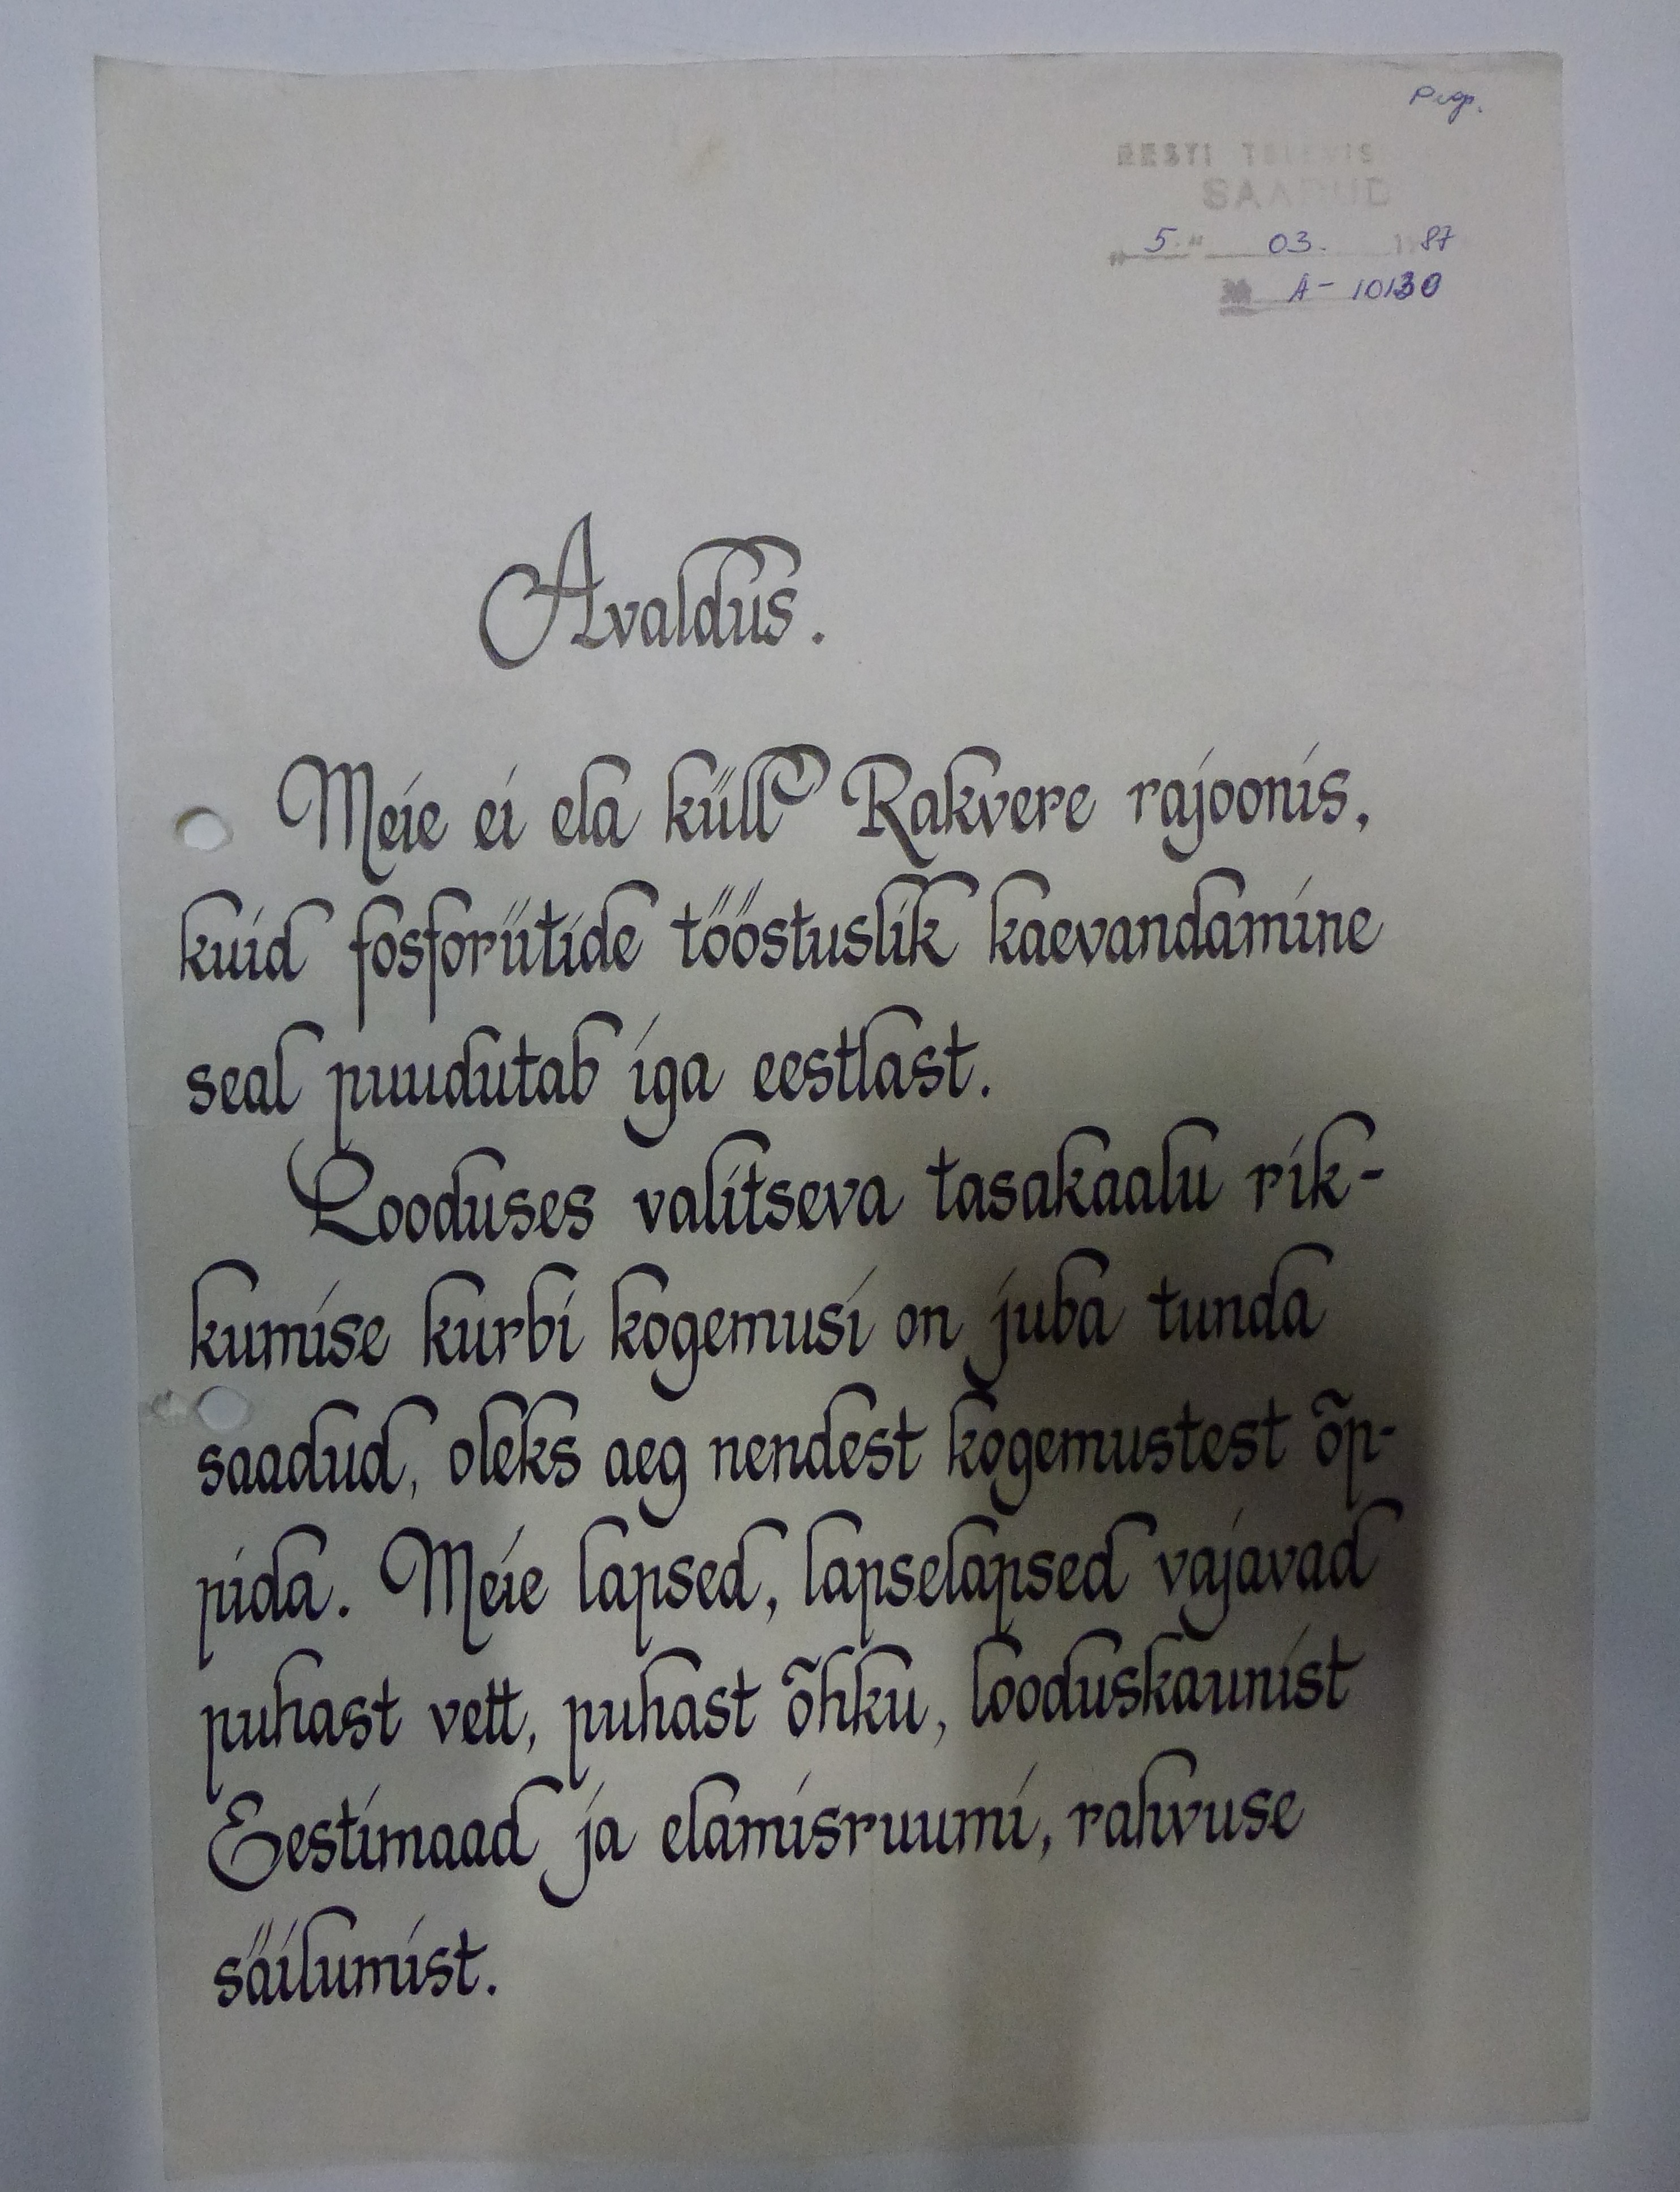 EESTI
SAADUD
„5." 03. 1987
A- 10130
Avaldus.
Meie ei ela küll Rakvere rajoonis,
kuid fosforiitide tööstuslik kaevandamine
seal puudutab iga eestlast.
Looduses valitseva tasakaalu rik-
kumise kurbi kogemusi on juba tunda
saadud, oleks aeg nendest kogemustest õp-
pida. Meie lapsed, lapselapsed vajavad
puhast vett, puhast õhku, looduskaunist
Eestimaad ja elamisruumi, rahvuse
säilumist.